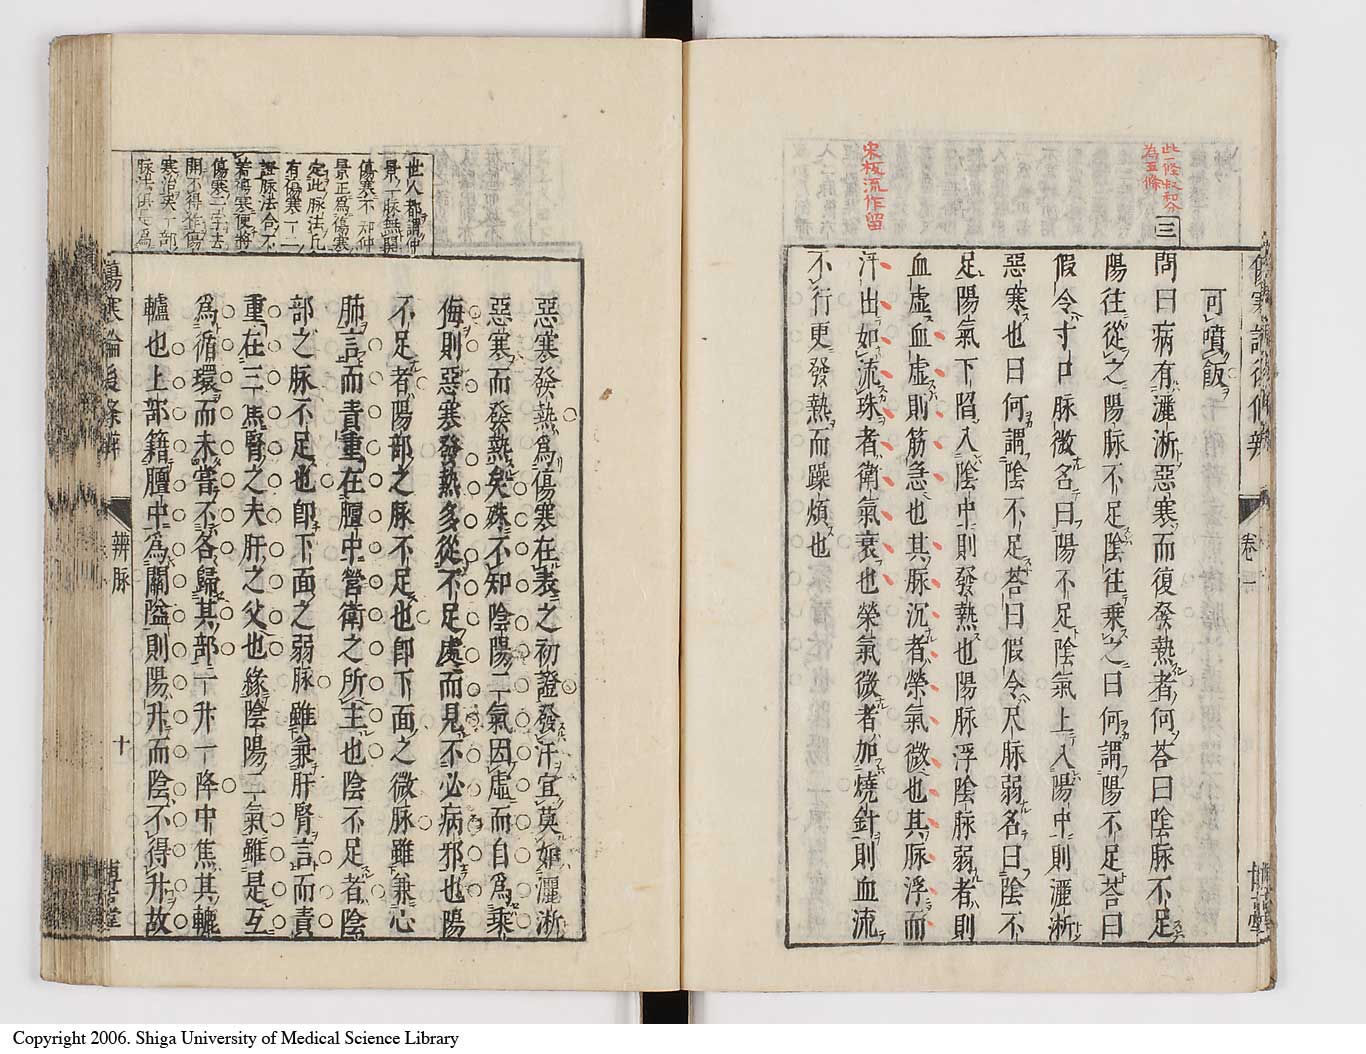 此一條叔和分
為五條
三
宋板流作留
可噴飯
問曰病有灑淅惡寒而復發熱者何荅曰陰脈不足
陽往從之陽脈不足陰往乘之曰何謂陽不足荅曰
假令寸口脈微名曰陽不足陰氣上入陽中則灑淅
惡寒也曰何謂陰不足荅曰假令尺脈弱名曰陰不
足陽氣下陷入陰中則發熱也陽脈浮陰脈弱者則
血虛血虛則筋急也其脈沉者榮氣微也其脈浮而
汗出如流珠者衛氣衰也榮氣微者加燒針則血流
不行更發熱而躁煩也
卷一
世人都謂仲
景一脈無關
傷寒不知仲
景正爲傷寒
定此脈法凡
有傷寒一二
證脈法合不
著傷寒便將
傷寒二字去
開不得雜傷
寒治寒一部
脈法俱是爲
惡寒發熱爲傷寒在表之初證發汗宜莫如灑淅
惡寒而發熱矣殊不知陰陽二氣因虛而自爲乘
侮則惡寒發熱多從不足處而見不必病邪也陽
不足者陽部之脈不足也卽下面之微脈雖兼心
肺言而責重在膻中營衛之所主也陰不足者陰
部之脈不足也卽下面之弱脈雖兼肝腎言而責
重在三焦腎之夫肝之父也緣陰陽二氣雖是互
爲循環而未嘗不各歸其部一升一降中焦其轆
轤也上部籍膻中爲關隘則陽升而陰不得升故
傷寒論後條辨
辨脈
十
博古堂
Copyright 2006. Shiga University of Medical Science Library